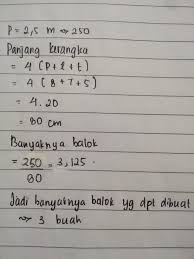 P = 2,5 m ⇒ 250
Panjang kerangka
= 4 (p + l + t)
= 4 (8 + 7 + 5)
= 4 . 20
= 80 cm
Banyaknya balok
= 250 = 3,125
80
Jadi banyaknya balok yg dpt dibuat
⇒ 3 buah